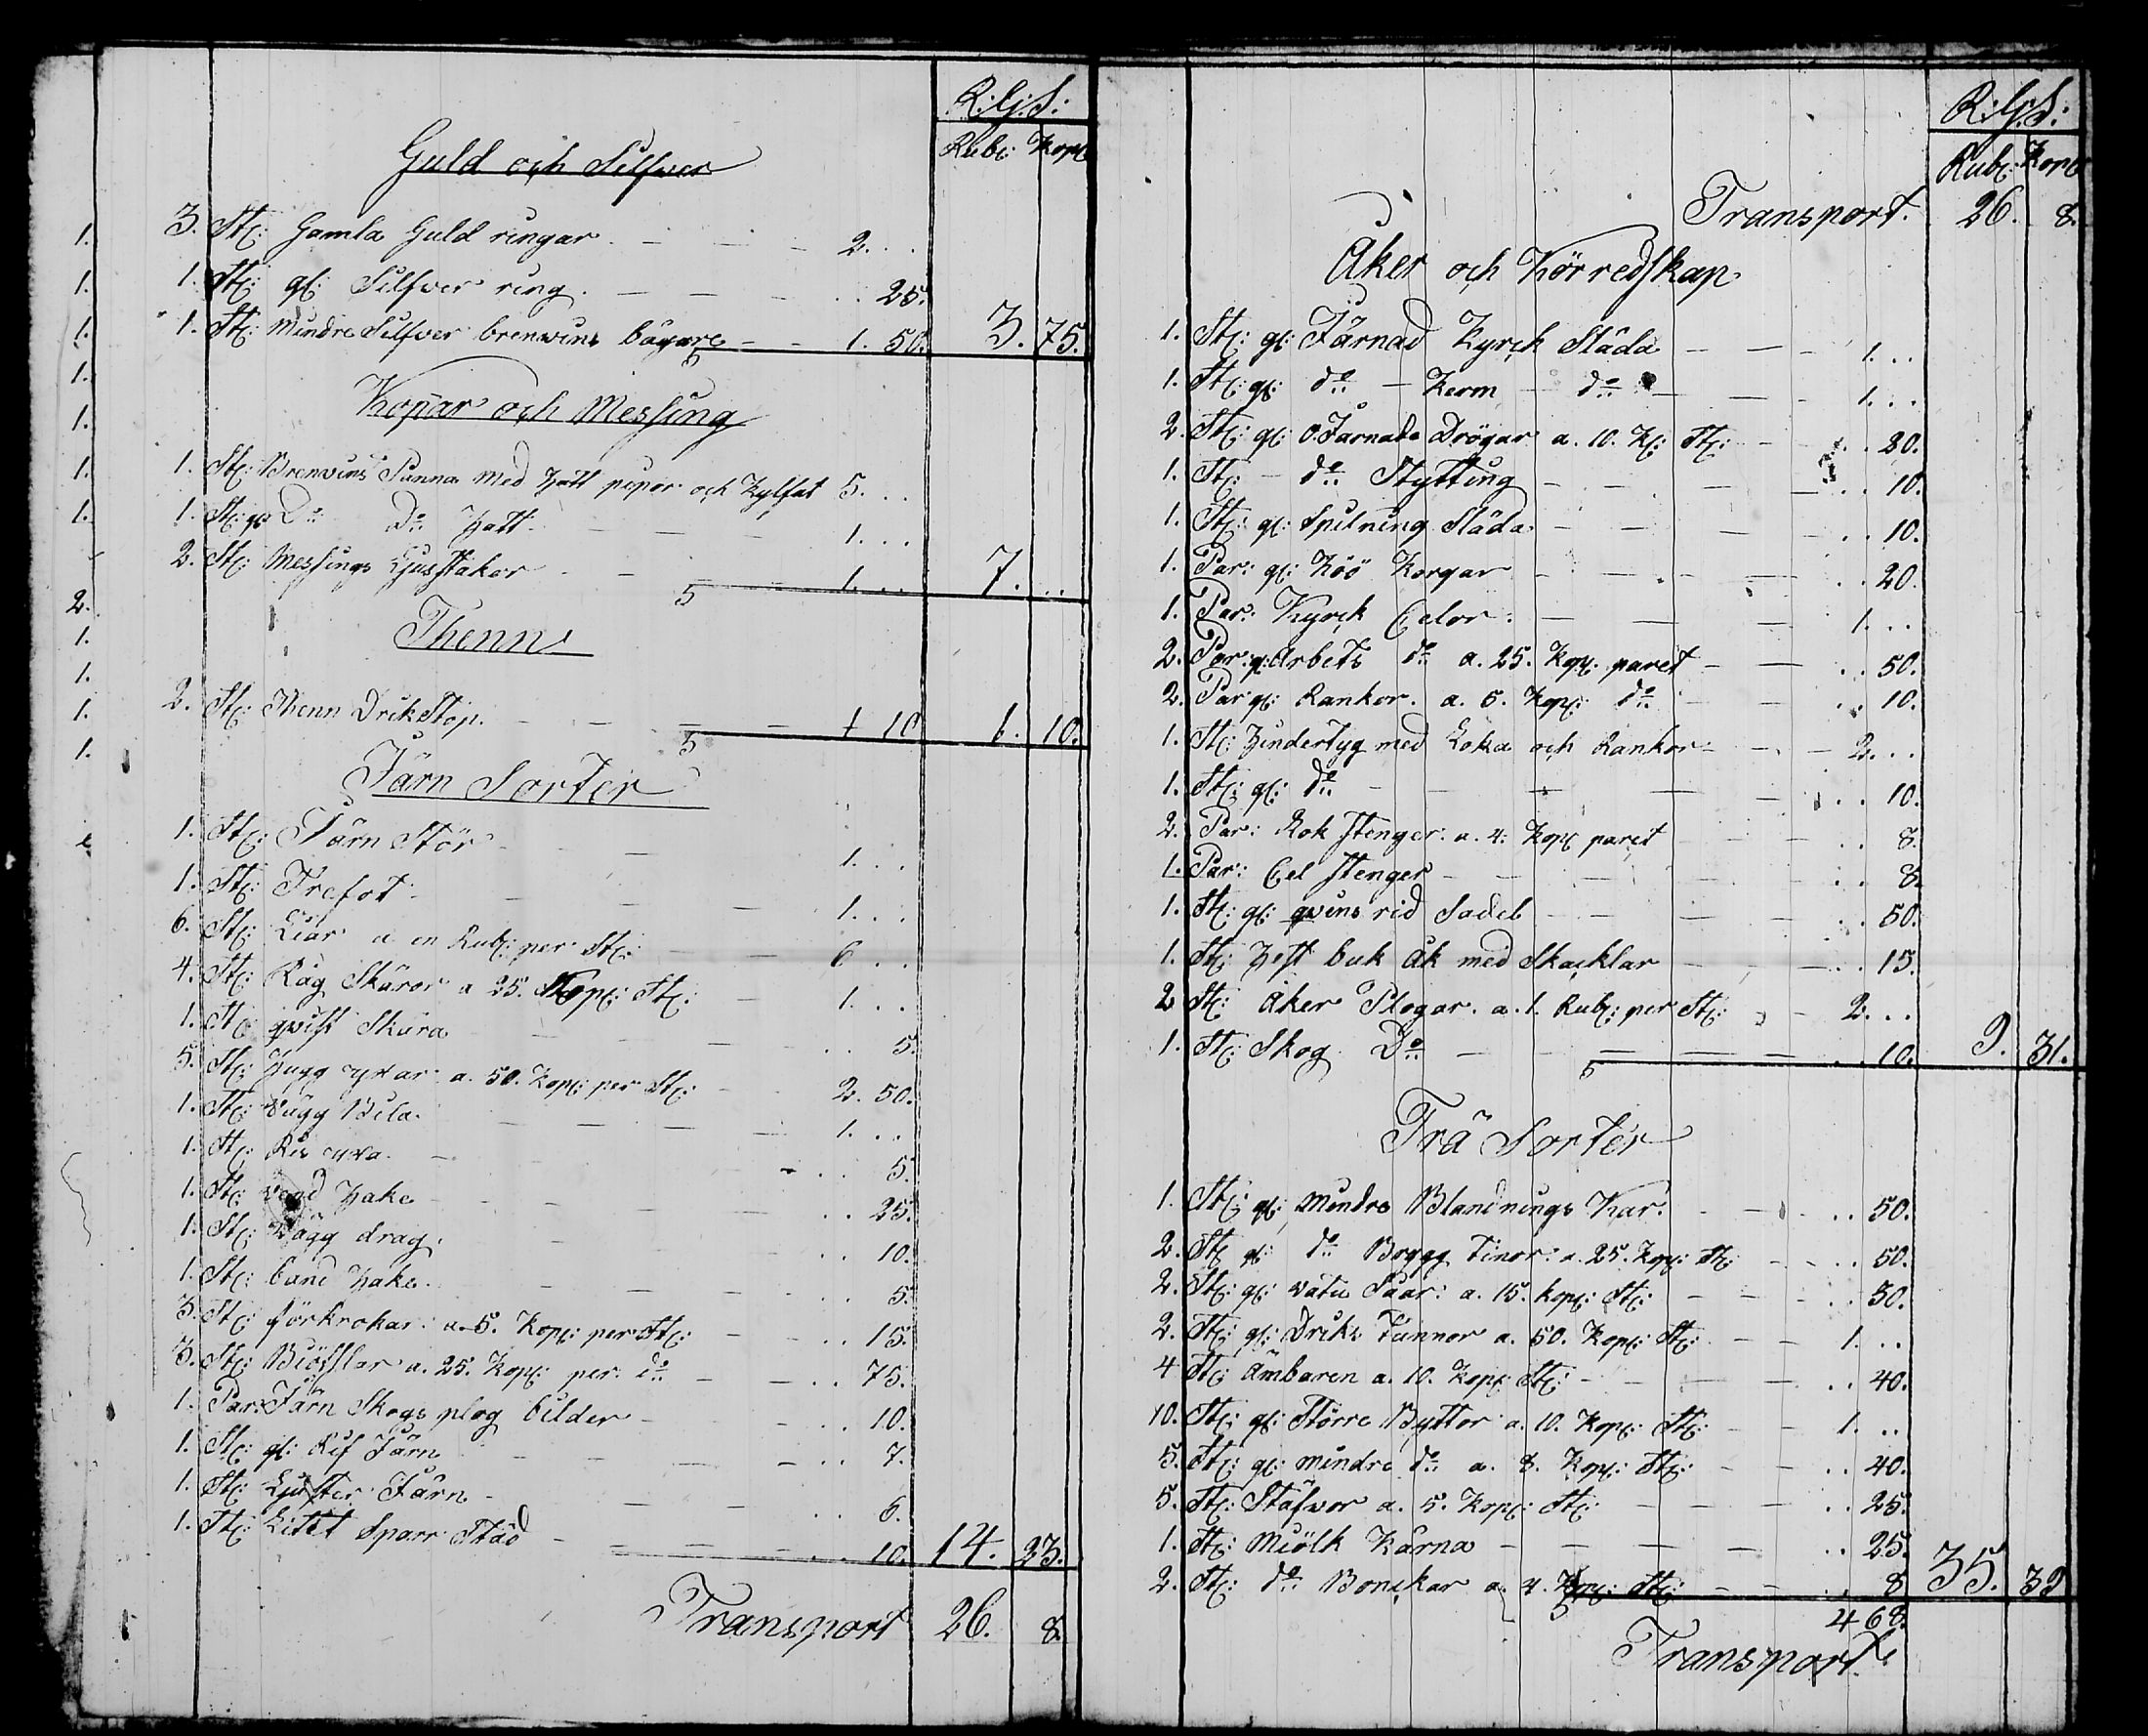 R:G:S:
Rub: Kop:
Guld och Silfver
3. St: Gamla Guld ringar 2. . .
1. St: gl: Silfver ring . . 25.
1. St: Mindre Silfver brenvins bägare 1. 50. 3. 75.
Kopar och Messing
1. St: Brenvins Panna med Hatt pipor och Kylfat 5. . .
1. St: gl: Do Do Hatt 1. . .
2. St: Messings Ljusstakar 1. . . 7. . .
Thenn
2. St: Thenn Drik Stop. 1 10 1. 10.
Järn Sorter
1. St: Järn Stör 1. . .
1. St: Trefot 1. . .
6. St: Liar a en Rub: per St: 6 . .
4. St: Råg Skäror a 25. Kop: St: 1. . .
1. St: qvist Skära . . 5.
5. St: Hugg yxar a. 50. Kop: per St: 2. 50.
1. St: Vägg Bila 1. . .
1. St: Ris yxa . . 5.
1. St: Vend Hake . . 25.
1. St: Vägg drag . . 10.
1. St: band Hake . . 5.
3. St: förkrokar a. 5. Kop: per St: . . 15.
3. St: Biösslar a. 25. Kop: per do . . 75.
1. Par: Järn Skogs plog bilder . . 10.
1. St: gl: Rif Järn . . 7.
1. St: Ljuster Järn . . 6.
1. St: Litet Sparr Städ . . 10. 14. 23.
Transport 26. 8.
R:G:S:
Rub: Kop:
Transport. 26. 8.
Åker och Körredskap
1. St: gl: Järnad Kyrck Släda 1. . .
1. St: gl: do Kerm do 1. . .
2. St: gl: o Järnade Drögar a. 10. K: St: . . 20.
1. St: do Stytting . . 10.
1. St: gl: Spilning Släda . . 10.
1. Par: gl: Höö Korgar . . 20.
1. Par: Kyrck Selor 1. . .
2. Par: gl: Arbets do a. 25. Kop: paret . . 50.
2. Par gl: Rankor. a. 5. Kop: do . . 10.
1. St: Hindertyg med Loka och Rankor 2. . .
1. St: gl: do . . 10.
2. Par: Rok Stenger a. 4. Kop: paret . . 8.
1. Par: Sel Stenger . . 8.
1. St: gl: qvins rid Sadel . . 50.
1. St: Hest buk åk med Skacklar . . 15.
2 St: Åker Plogar. a. 1. Rub: per St: 2. . .
1. St: Skog Do . . 10. 9. 31.
Trä Sorter
1. St: gl: Mindre Blandnings Kar. . . 50.
2. St: gl: do Brygg Tinor a. 25. Kop: St: . . 50.
2. St: gl: vatu Såar: a. 15. kop: St: . . 30.
2. St: gl: Driks Tunnor a. 50. Kop: St: 1. . .
4 St: Ämbaren a. 10. Kop: St: . . 40.
10. St: gl: Större Byttor a. 10. Kop: St: 1. . .
5. St: gl: mindre do a. 8. Kop: St: . . 40.
5. St: Stäfvor a. 5. Kop: St: . . 25.
1. St: Miölk Kärna . . 25.
2. St: do Bonckar a. 4. Kop: St: . . 8 35. 39
4 68.
Transport